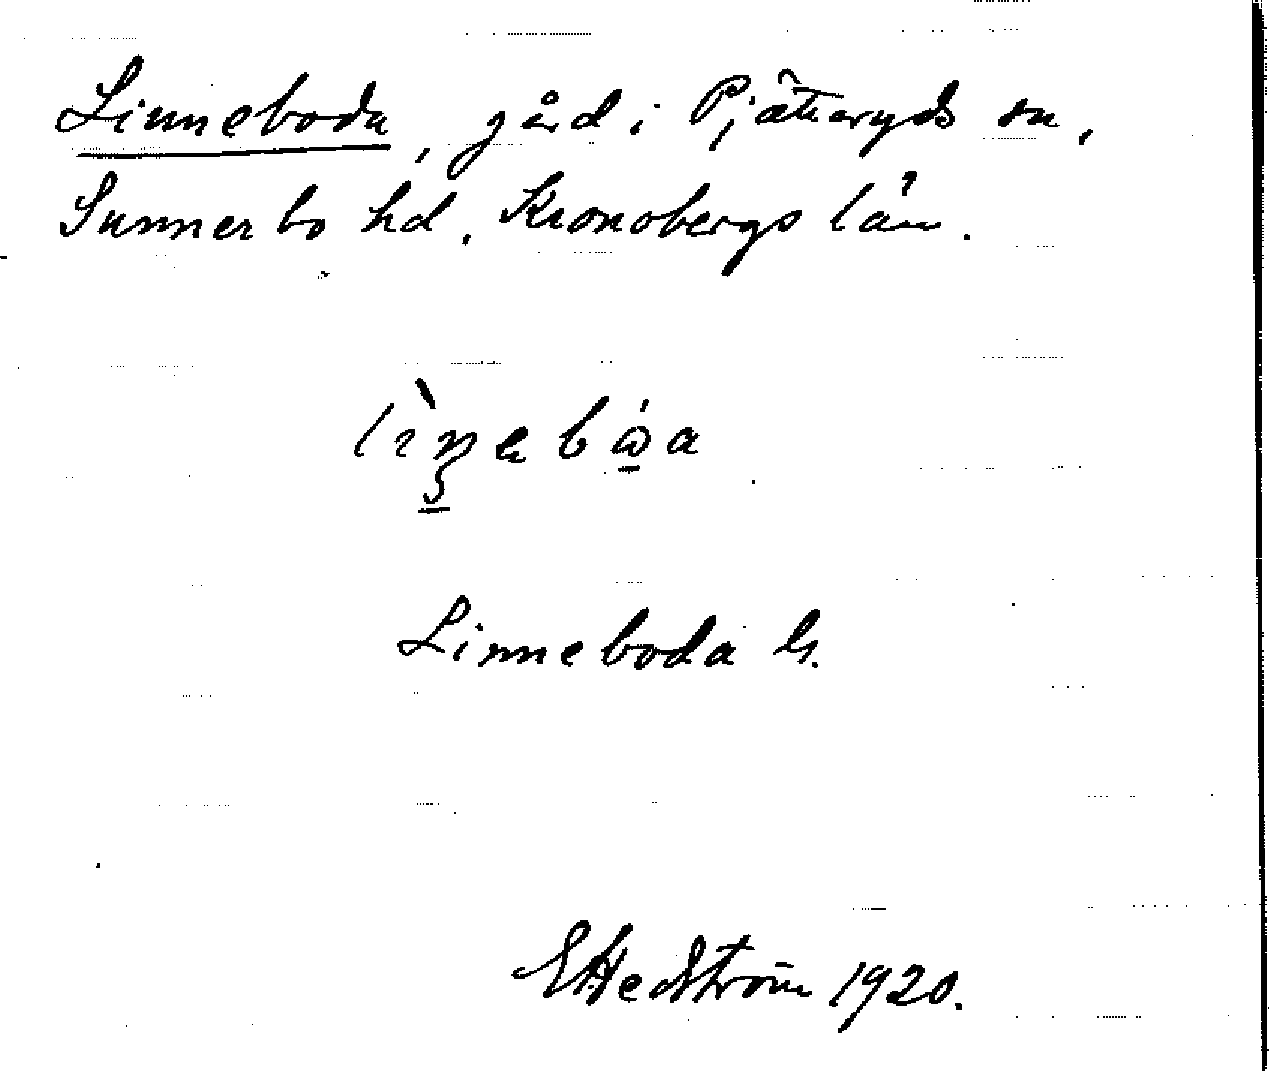 Linneboda, gård i Pjätteryds sn,
Sunnerbo hd. Kronobergs län.
Linneboda G.
E Hedström 1920.